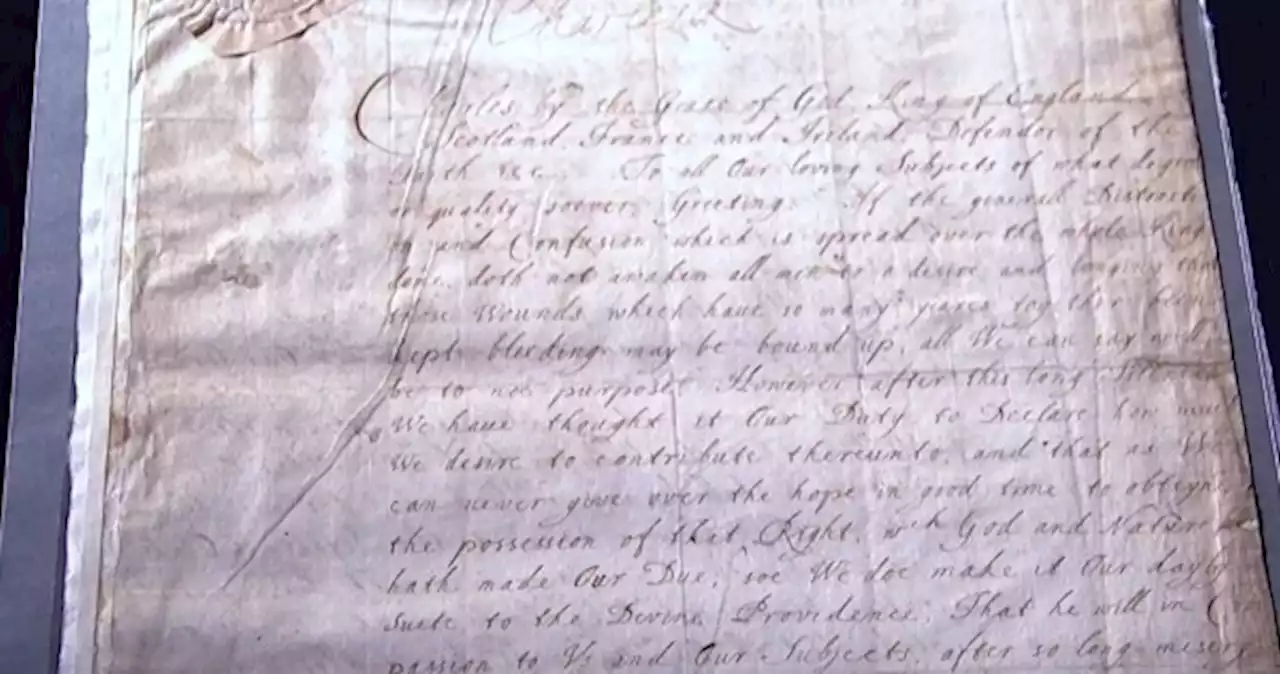 Charles R
Charles by the Grace of God, King of England
Scotland, France and Ireland, Defendor of the
Faith &c. To all Our loving Subjects of what degree
or quality soever, Greeting. If the general Distracti
on and Confusion which is spread over the whole King
dome, doth not awaken all men to a desire and longing that
those Wounds which have so many yeares together been
kept bleeding may be bound up, all We can say will
be to noe purpose. However after this long Silence
We have thought it Our Duty to Declare how much
We desire to contribute thereunto, and that as We
can never give over the hope in good time to obteyne
the possession of that Right, wch God and Nature
hath made Our Due, soe We doe make it Our dayly
Suite to the Devine Providence, That he will in Com
passion to Vs and Our Subjects, after so long misery